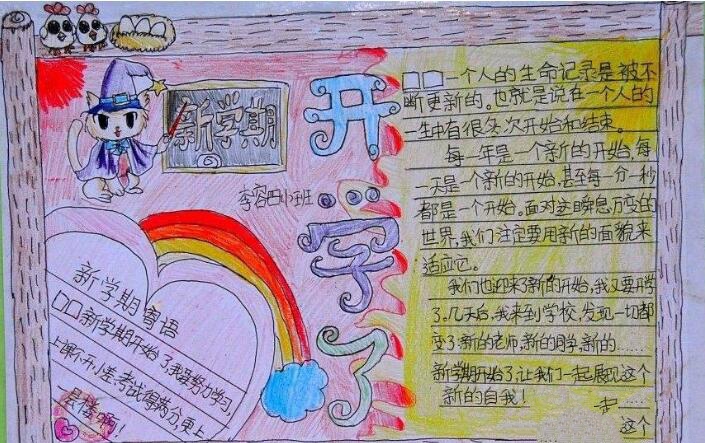 新学期
开学了
李容四小班
新学期寄语
□□新学期开始了,我要努力学习,
上课不开小差,考试得两分,更上
一层楼啊!
□□一个人的生命记录是被不
断更新的。也就是说在一个人的
一生中有很多次开始和结束。
每一年是一个新的开始,每
一天是一个新的开始,甚至每一分一秒
都是一个开始。面对这瞬息万变的
世界,我们注定要用新的面貌来
适应它。
我们也迎来了新的开始,我又要开学
了。几天后,我来到学校,发现一切都
变了:新的老师,新的同学,新的……
新学期开始了,让我们一起展现这个
新的自我!
一起
这个